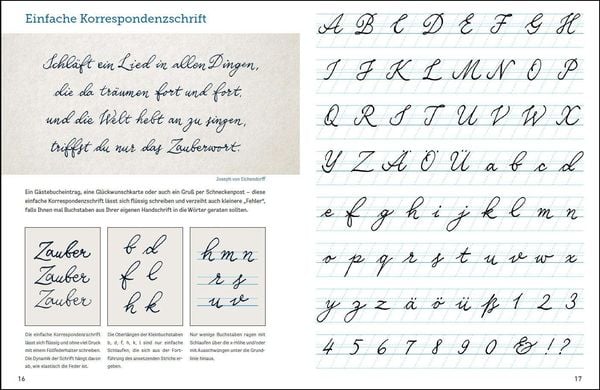 Einfache Korrespondenzschrift
Schläft ein Lied in allen Dingen,
die da träumen fort und fort,
und die Welt hebt an zu singen,
triffst du nur das Zauberwort.
Joseph von Eichendorff
Ein Gästebucheintrag, eine Glückwunschkarte oder auch ein Gruß per Schneckenpost – diese
einfache Korrespondenzschrift lässt sich flüssig schreiben und verzeiht auch kleinere „Fehler“,
falls Ihnen mal Buchstaben aus Ihrer eigenen Handschrift in die Wörter geraten sollten.
Zauber
Zauber
Zauber
b d
f l
h k
h m n
r s
u v
Die einfache Korrespondenzschrift
lässt sich flüssig und ohne viel Druck
mit einem Füllfederhalter schreiben.
Die Dynamik der Schrift hängt davon
ab, wie elastisch die Feder ist.
Die Oberlängen der Kleinbuchstaben
b, d, f, h, k, l sind nur einfache
Schlaufen, die sich aus der Fort-
führung des ansetzenden Striche er-
geben.
Nur wenige Buchstaben ragen mit
Schlaufen über die x-Höhe und/oder
mit Ausschwüngen unter die Grund-
linie hinaus.
16
A B C D E F G H
I J K L M N O P
Q R S T U V W X
Y Z Ä Ö Ü a b c d
e f g h i j k l m n
o p q r s t u v w x
y z ä ö ü ß 1 2 3
4 5 6 7 8 9 0 & ! ?
17